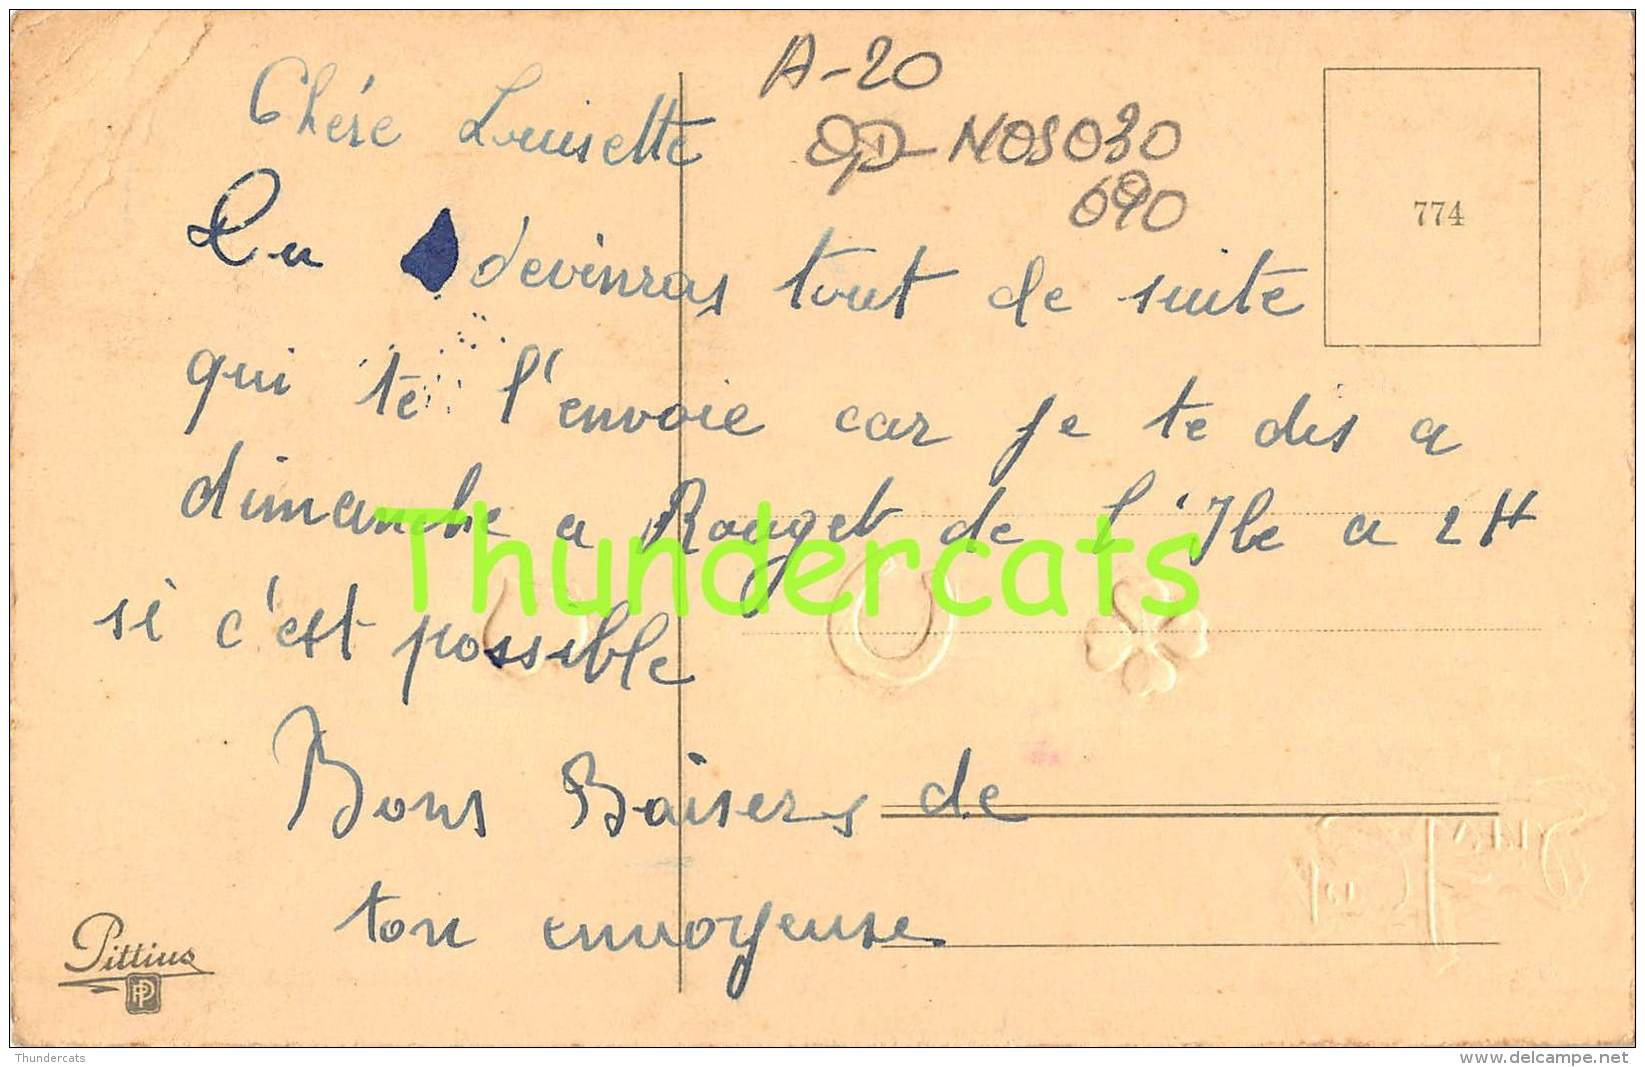 A-20
Chére Louisette
OP-NOS030
690
774
Tu devinras tout de suite
qui te l'envoie car je te dis a
dimanche a Rouget de l'Ile a 2H
Thundercats
si c'est possible
Bons Baisers de
ton envoyeuse
Pittius
PP
Thundercats
www.delcampe.net